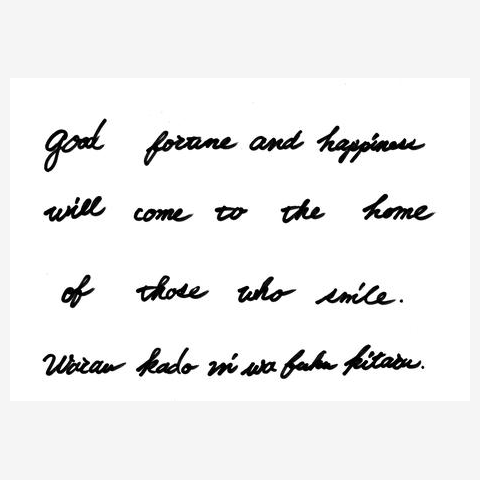 good fortune and happiness
will come to the home
of those who smile.
Warau kado ni wa fuku kitaru.